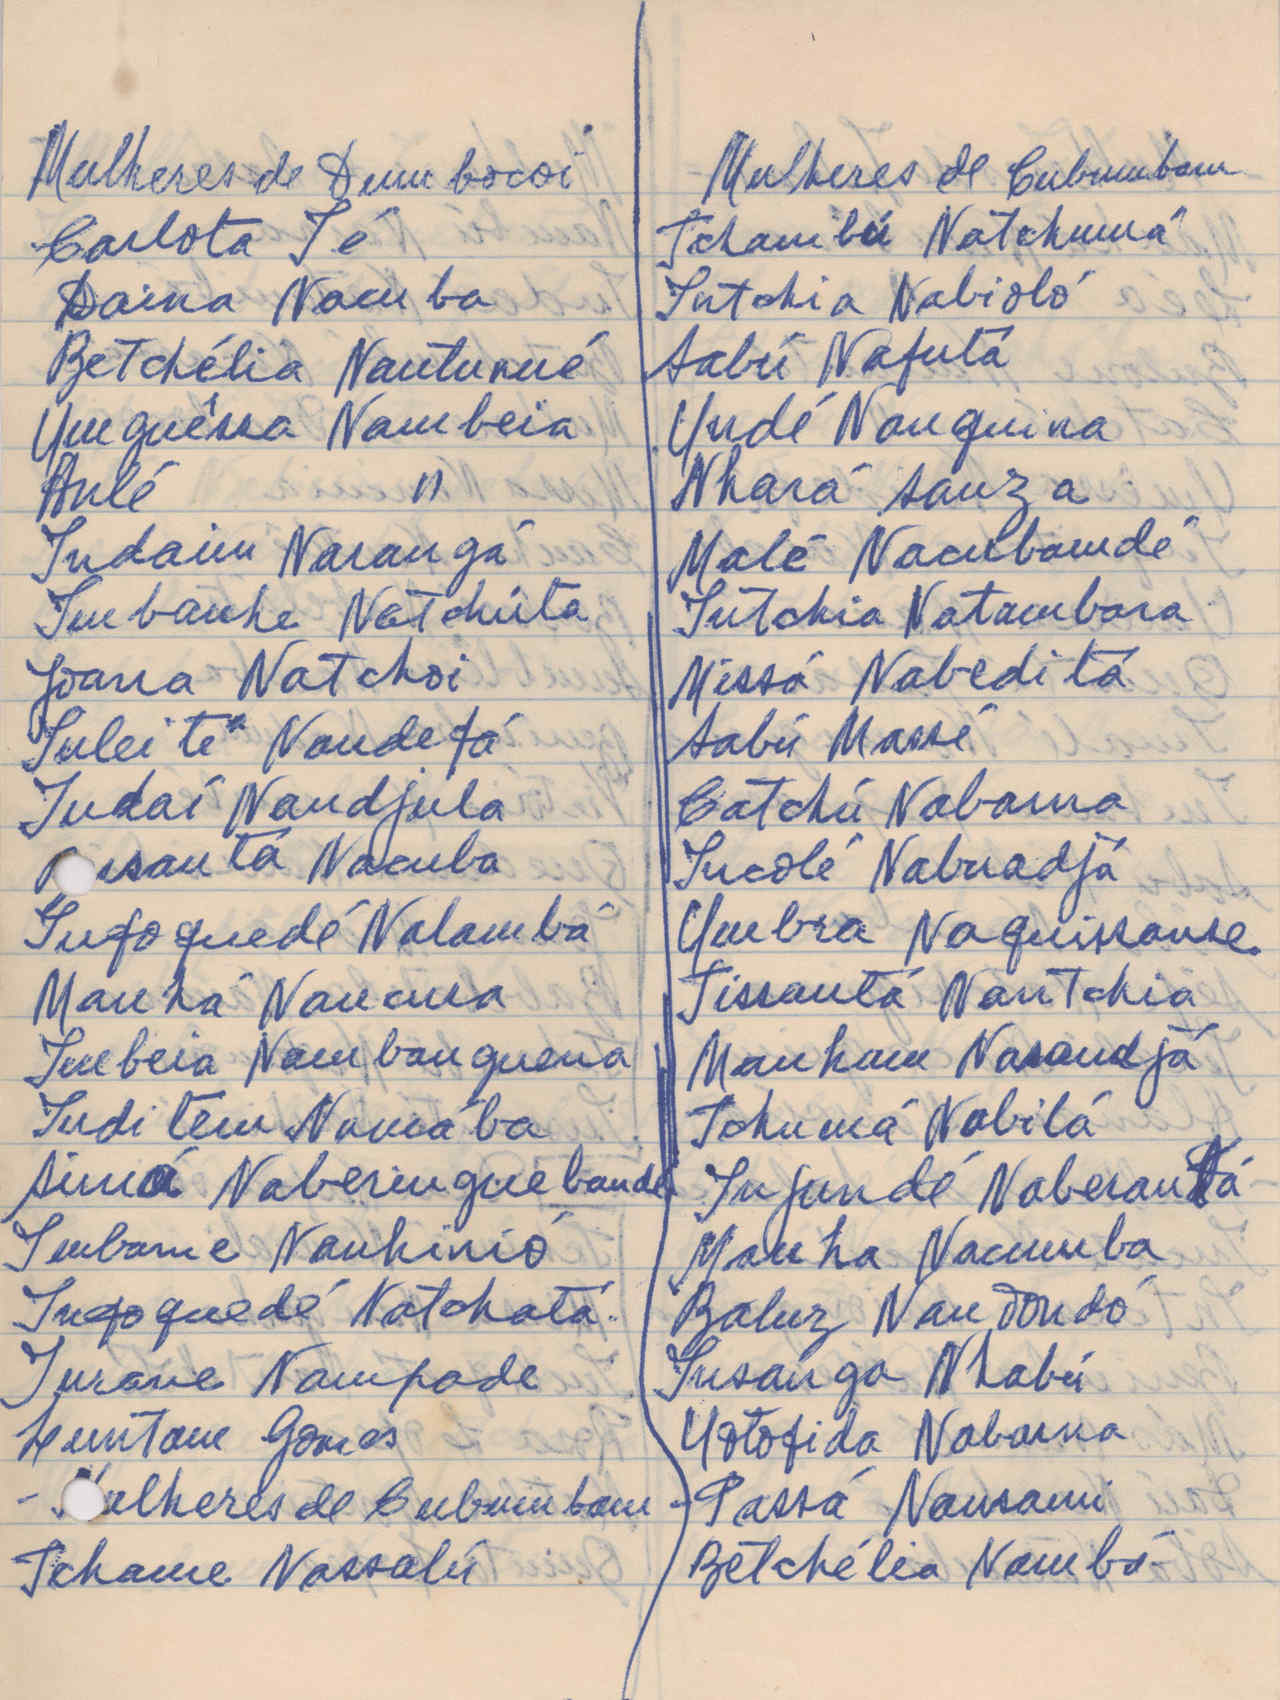 Mulheres de Dum bocoi
Carlota Té
Daina Nacuba
Betchélia Nantunué
Umguêssa Nambeia
Aulé "
Indaim Narangá
Imbanhe Natchúta
Joana Natchoi
Suleite Nandefá
Indaí Nandjula
santá Nacuba
Infoquedé Nalambá
Manhá Nancusa
Imbeia Nambanguena
Inditem Namába
Simá Naberinguebande
Imbane Nanhinió
Infoquedé Natchatá.
Jurane Nampade
Gomes
- ulheres de Cubumbam
Tchame Nassalú
Mulheres de Cubumbam
Tchambú Natchumá
Intchia Nabioló
Sabú Nafutá
Undé Nanquina
Nhará Sanza
Malé Nacubamdé
Intchia Natambara
Missá Nabeditá
Sabú Massé
Catchú Nabarna
Incolé Nabuadjá
Umbra Naquissanse
Tissantá Nantchia
Manhum Nasandjá
Tchumá Nabilá
Injundé Naberantá
Manha Nacumba
Baluz Nandondó
Insanga Nhabú
Uotofida Nabarna
- Passá Nansami
Betchélia Nambá